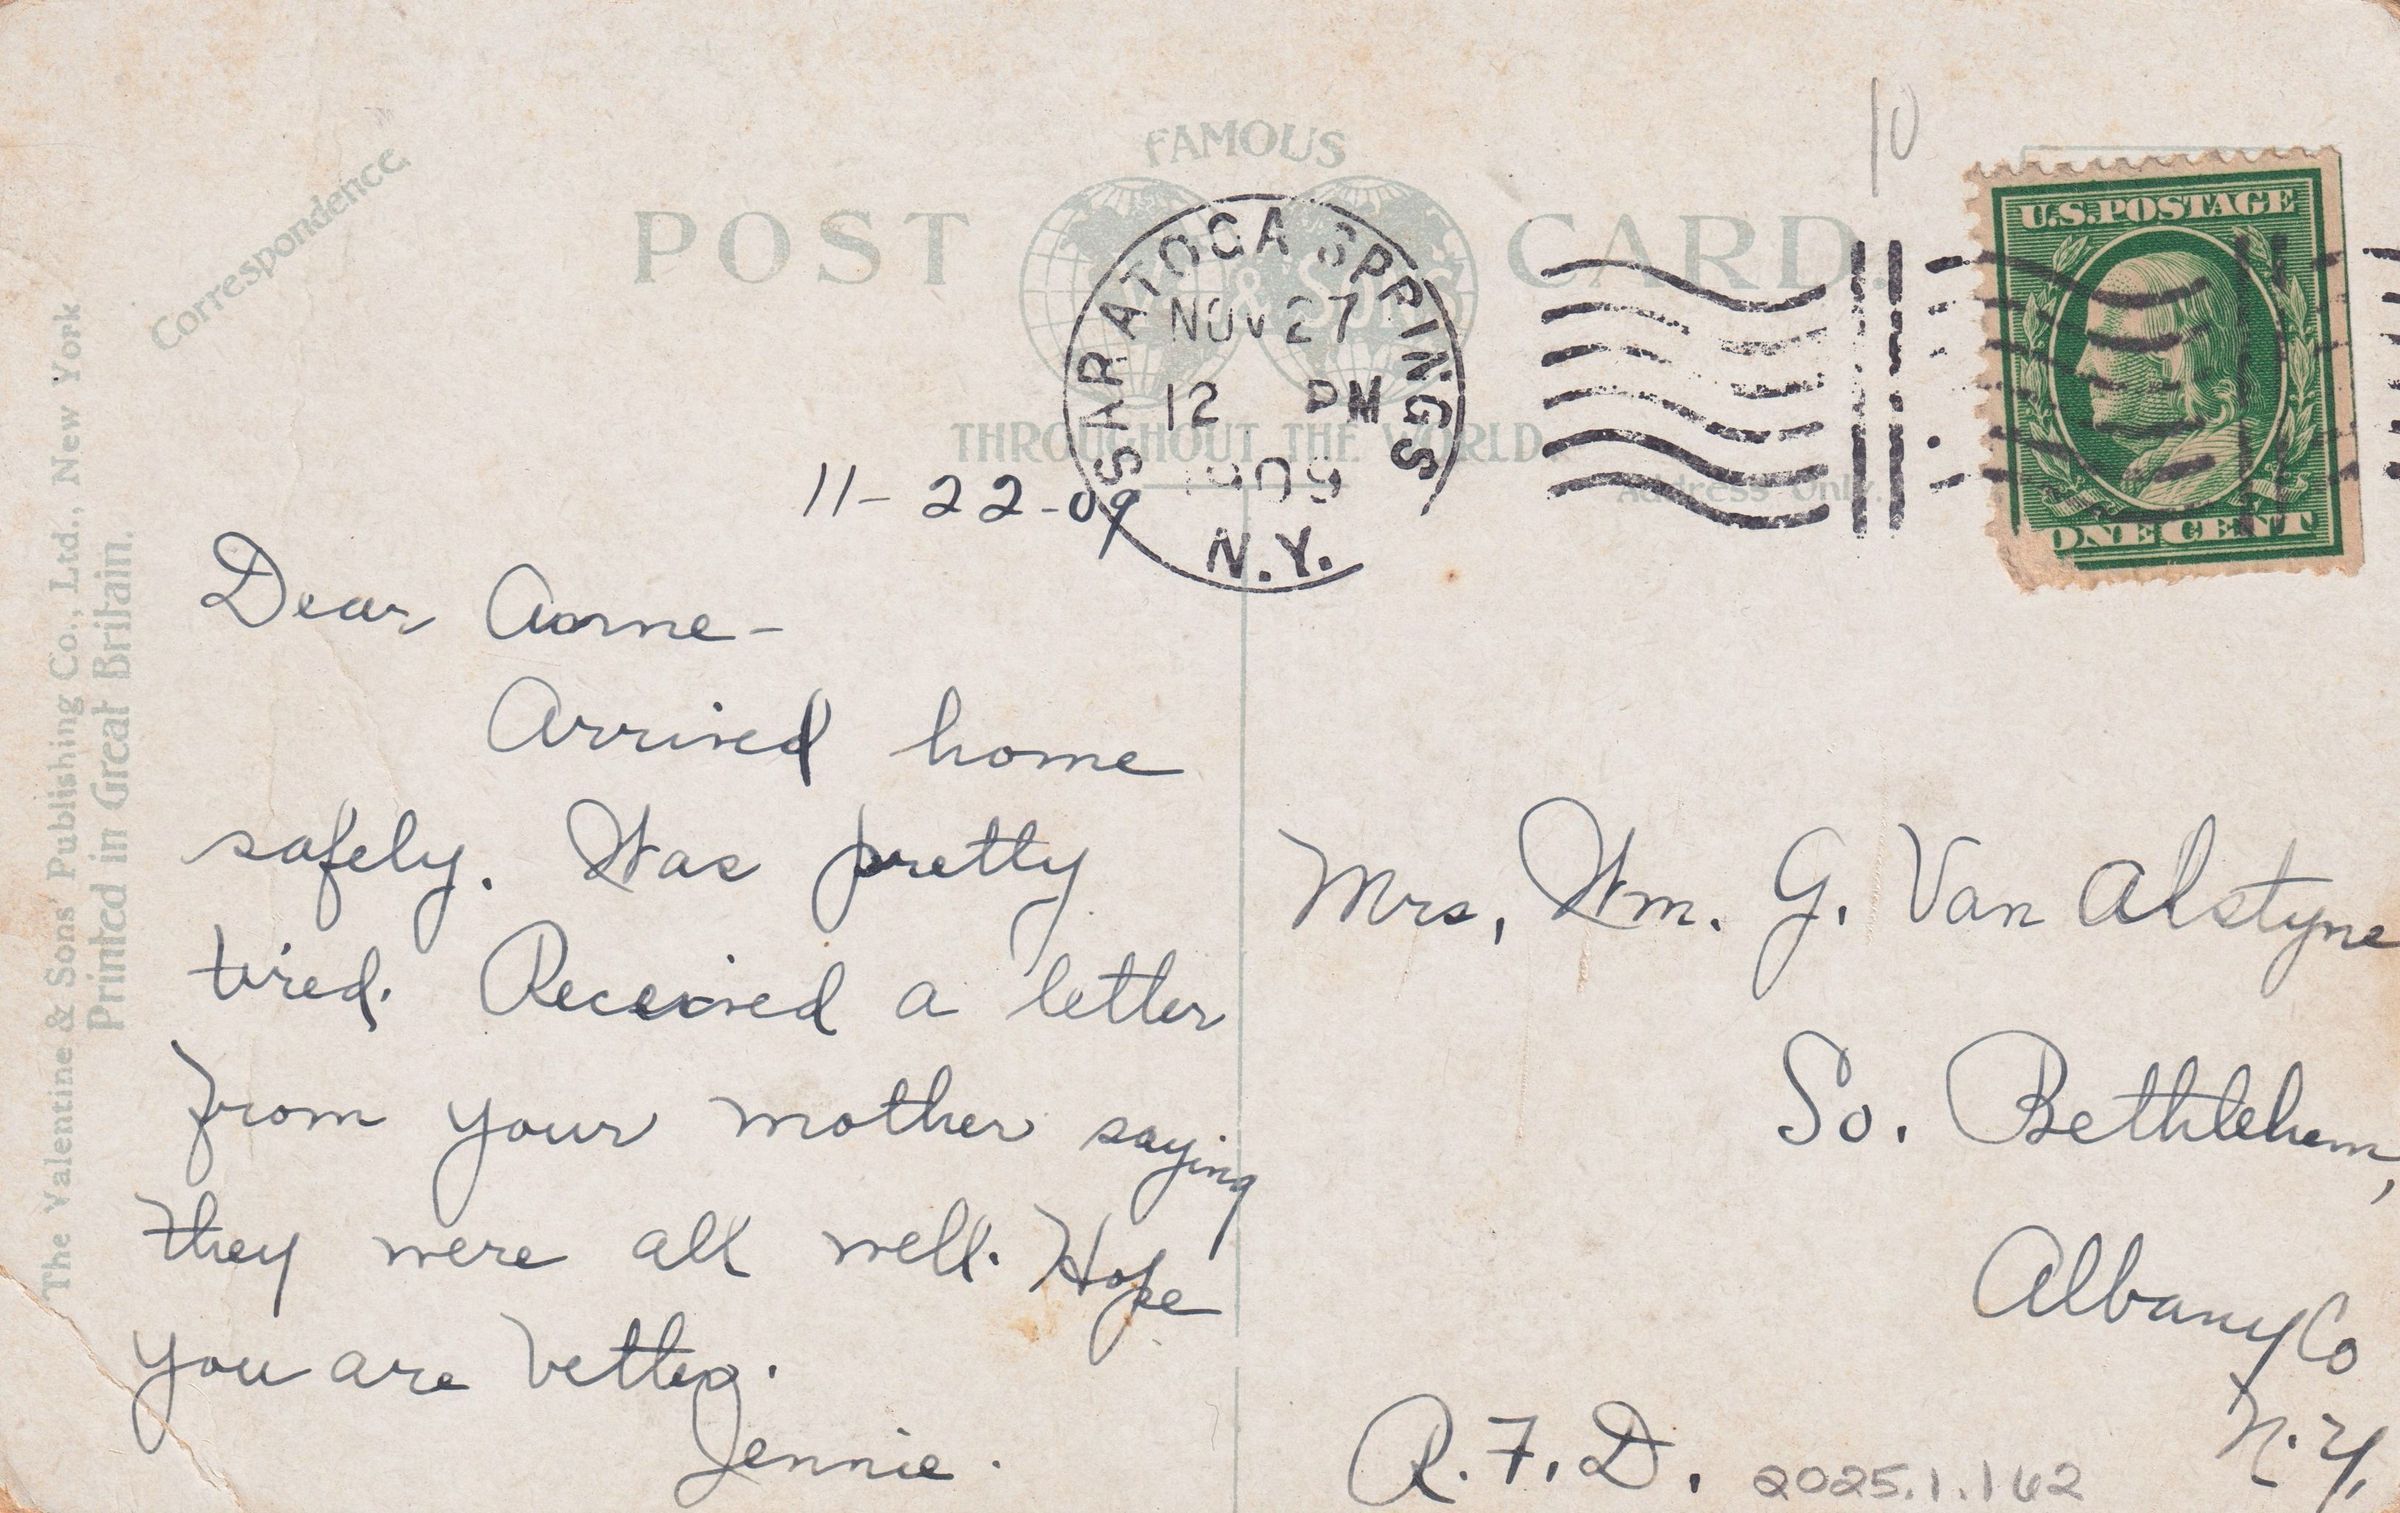 10
Correspondence.
FAMOUS
POST CARD.
& Sons
THROUGHOUT THE WORLD.
Address Only.
SARATOGA SPRINGS
NOV 27
12 PM
1909
N.Y.
U.S. POSTAGE
ONE CENT
The Valentine & Sons' Publishing Co., Ltd., New York
Printed in Great Britain.
11-22-09
Dear
Arrived home
safely. Was pretty
tired. Received a letter
from your mother saying
they were all well. Hope
you are better.
Jennie.
Mrs. Wm. G. Van Alstyne
So. Bethlehem,
Albany Co
N.Y.
R.F.D.
2025.1.162